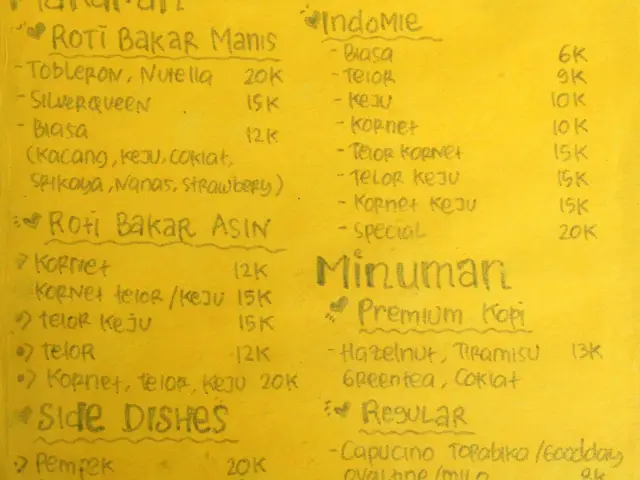 Makanan
Roti Bakar Manis
- Tobleron, Nutella 20K
- Silverqueen 15K
- Biasa 12K
(Kacang, Keju, Coklat,
Srikaya, Nanas, Strawbery)
Roti Bakar Asin
Kornet 12K
Kornet telor/Keju 15K
Telor Keju 15K
Telor 12K
Kornet, Telor, Keju 20K
Side Dishes
Pempek 20K
Indomie
- Biasa 6K
- Telor 9K
- Keju 10K
- Kornet 10K
- Telor Kornet 15K
- Telor Keju 15K
- Kornet Keju 15K
- Special 20K
Minuman
Premium Kopi
- Hazelnut, Tiramisu 13K
Greentea, Coklat
Regular
- Capucino Torabika/Goodday
Ovaltine/Milo 8K